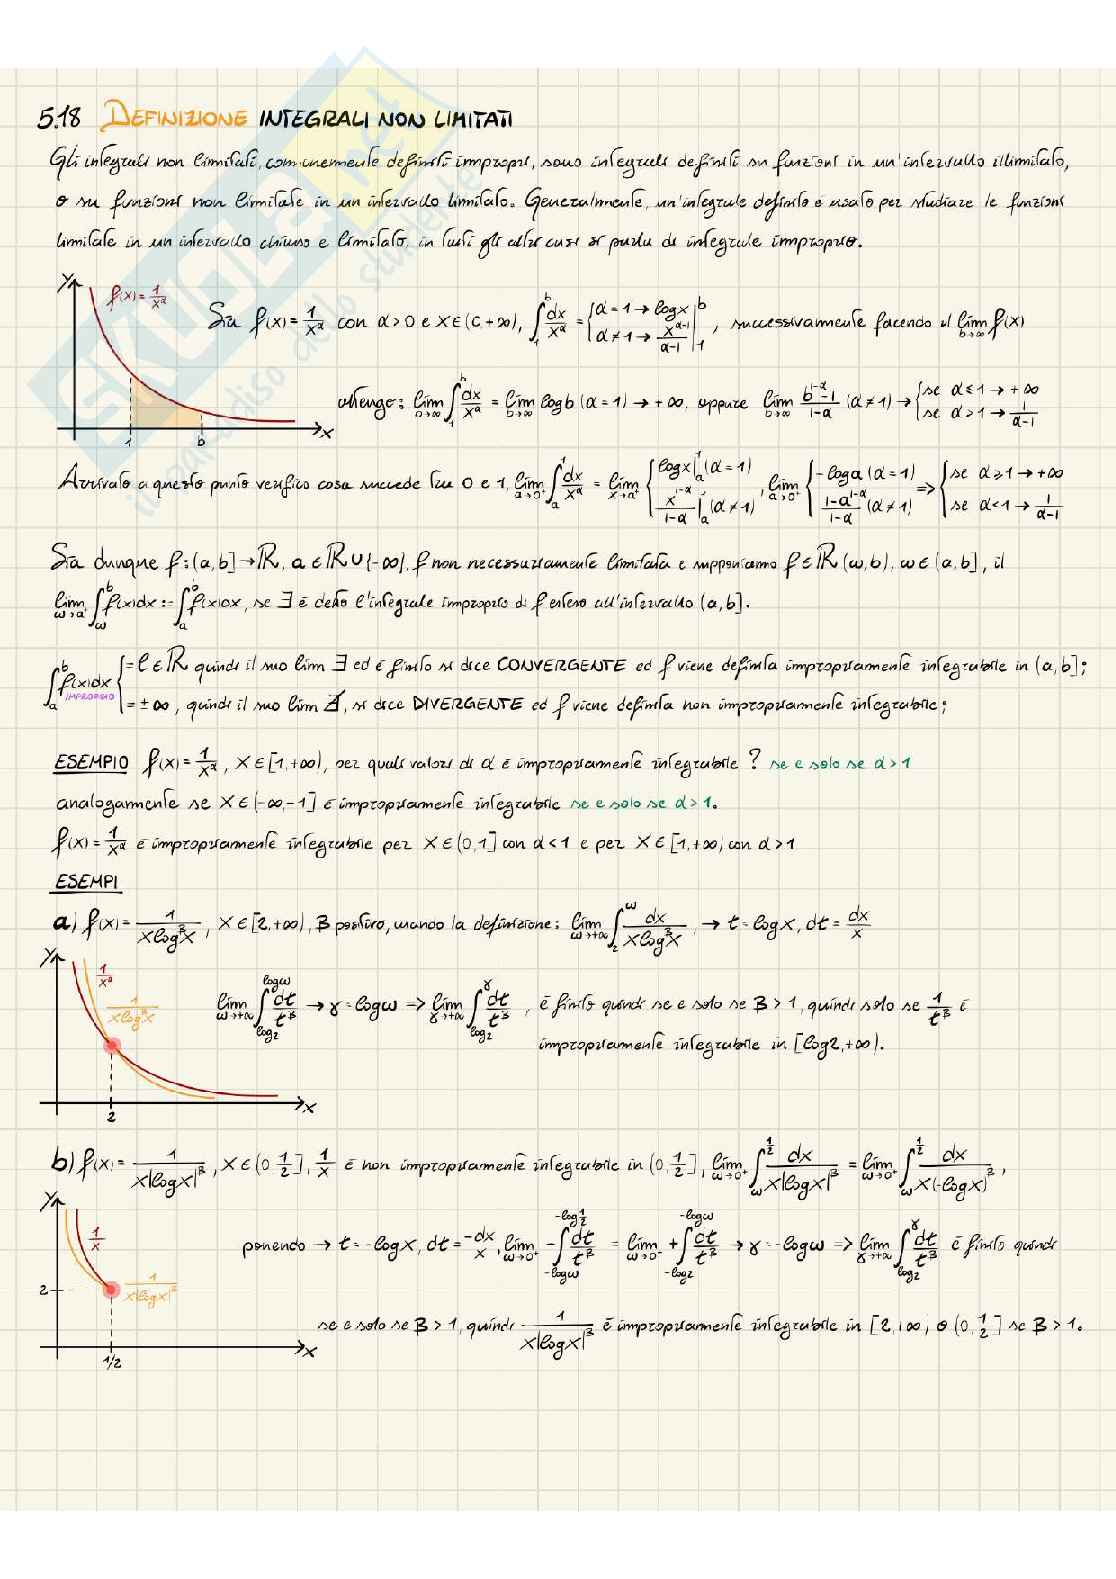 5.18 DEFINIZIONE INTEGRALI NON LIMITATI
Gli integrali non limitati, comunemente definiti impropri, sono integrali definiti su funzioni in un'intervallo illimitato,
o su funzioni non limitate in un intervallo limitato. Generalmente, un'integrale definito è usato per studiare le funzioni
limitate in un intervallo chiuso e limitato, in tutti gli altri casi si parla di integrale improprio.
y f(x)=1/x^α
Sia f(x)=1/x^α con α>0 e x∈(0+∞), ∫_1^b dx/x^α = {α=1→logx |_1^b ; α≠1→ x^(α-1)/(α-1) |_1^b , successivamente facendo il lim_{b→∞} f(x)
ottengo: lim_{b→∞} ∫_1^b dx/x^α = lim_{b→∞} logb (α=1)→+∞, oppure lim_{b→∞} (b^(1-α)-1)/(1-α) (α≠1)→{se α≤1→+∞ ; se α>1→ 1/(α-1)
1 b x
Arrivato a questo punto verifico cosa succede tra 0 e 1, lim_{a→0+} ∫_a^1 dx/x^α = lim_{x→a+} {logx |_a^1 (α=1) ; x^(1-α)/(1-α) |_a^1 (α≠1) , lim_{a→0+} {-loga (α=1) ; (1-a^(1-α))/(1-α) (α≠1) => {se α≥1→+∞ ; se α<1→ 1/(α-1)
Sia dunque f:(a,b]→ℝ, a∈ℝ∪{-∞}, f non necessariamente limitata e supponiamo f∈ℝ(ω,b), ω∈(a,b], il
lim_{ω→a} ∫_ω^b f(x)dx := ∫_a^b f(x)dx, se ∃ è detto l'integrale improprio di f esteso all'intervallo (a,b].
∫_a^b f(x)dx IMPROPRIO {=ℓ∈ℝ quindi il suo lim ∃ ed è finito si dice CONVERGENTE ed f viene definita impropriamente integrabile in (a,b];
=±∞, quindi il suo lim ∄, si dice DIVERGENTE ed f viene definita non impropriamente integrabile;
ESEMPIO f(x)=1/x^α, x∈[1,+∞), per quali valori di α è impropriamente integrabile? se e solo se α>1
analogamente se x∈(-∞,-1] è impropriamente integrabile se e solo se α>1.
f(x)=1/x^α è impropriamente integrabile per x∈(0,1] con α<1 e per x∈[1,+∞) con α>1
ESEMPI
a) f(x)= 1/(xlog^βx), x∈[2,+∞), β positivo, usando la definizione: lim_{ω→+∞} ∫_2^ω dx/(xlog^βx), → t=logx, dt=dx/x
y 1/x^α
1/(xlog^βx)
lim_{ω→+∞} ∫_{log2}^{logω} dt/t^β → γ=logω => lim_{γ→+∞} ∫_{log2}^γ dt/t^β , è finito quindi se e solo se β>1, quindi solo se 1/t^β è
impropriamente integrabile in [log2,+∞).
2 x
b) f(x)= 1/(x|logx|^β), x∈(0 1/2], 1/x è non impropriamente integrabile in (0,1/2], lim_{ω→0+} ∫_ω^{1/2} dx/(x|logx|^β) = lim_{ω→0+} ∫_ω^{1/2} dx/(x(-logx)^β),
y 1/x
ponendo → t=-logx, dt=-dx/x, lim_{ω→0+} -∫_{-logω}^{-log1/2} dt/t^β = lim_{ω→0} +∫_{-log2}^{-logω} dt/t^β → γ=-logω => lim_{γ→+∞} ∫_{log2}^γ dt/t^β è finito quindi
2 1/(x|logx|^β)
se e solo se β>1, quindi 1/(x|logx|^β) è impropriamente integrabile in [2,+∞) o (0,1/2] se β>1.
1/2 x